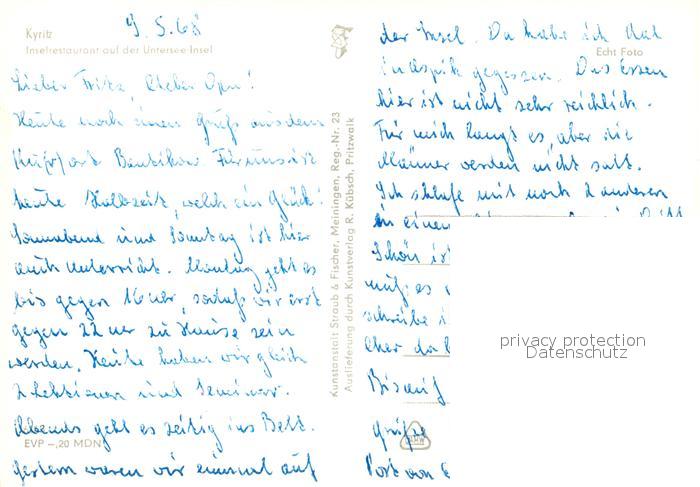 Kyritz
Inselrestaurant auf der Untersee-Insel
9.5.68
Lieber Fritz, lieber Opa!
Heute noch einen Gruß aus dem
Kurort Bantikow. Für uns ist
heute Halbzeit, welch ein Glück!
Sonnabend und Sonntag ist hier
auch Unterricht. Montag geht es
bis gegen 16 Uhr, sodaß wir erst
gegen 22 Uhr zu Hause sein
werden. Heute haben wir gleich
2 Lektionen und Seminar.
Abends geht es zeitig ins Bett.
EVP -,20 MDN
Gestern waren wir einmal auf
Kunstanstalt Straub & Fischer, Meiningen, Reg.-Nr. 23
Auslieferung durch Kunstverlag R. Kübsch, Pritzwalk
der Insel. Da habe ich Aal
Echt Foto
gegessen. Das Essen
hier ist nicht sehr reichlich.
Für mich langt es, aber die
Männer werden nicht satt.
Ich schlafe mit noch 2 anderen
in einem
Schön ist
muß es
schreibe
Eher da
Bis auf
Grüße
Post von
privacy protection
Datenschutz